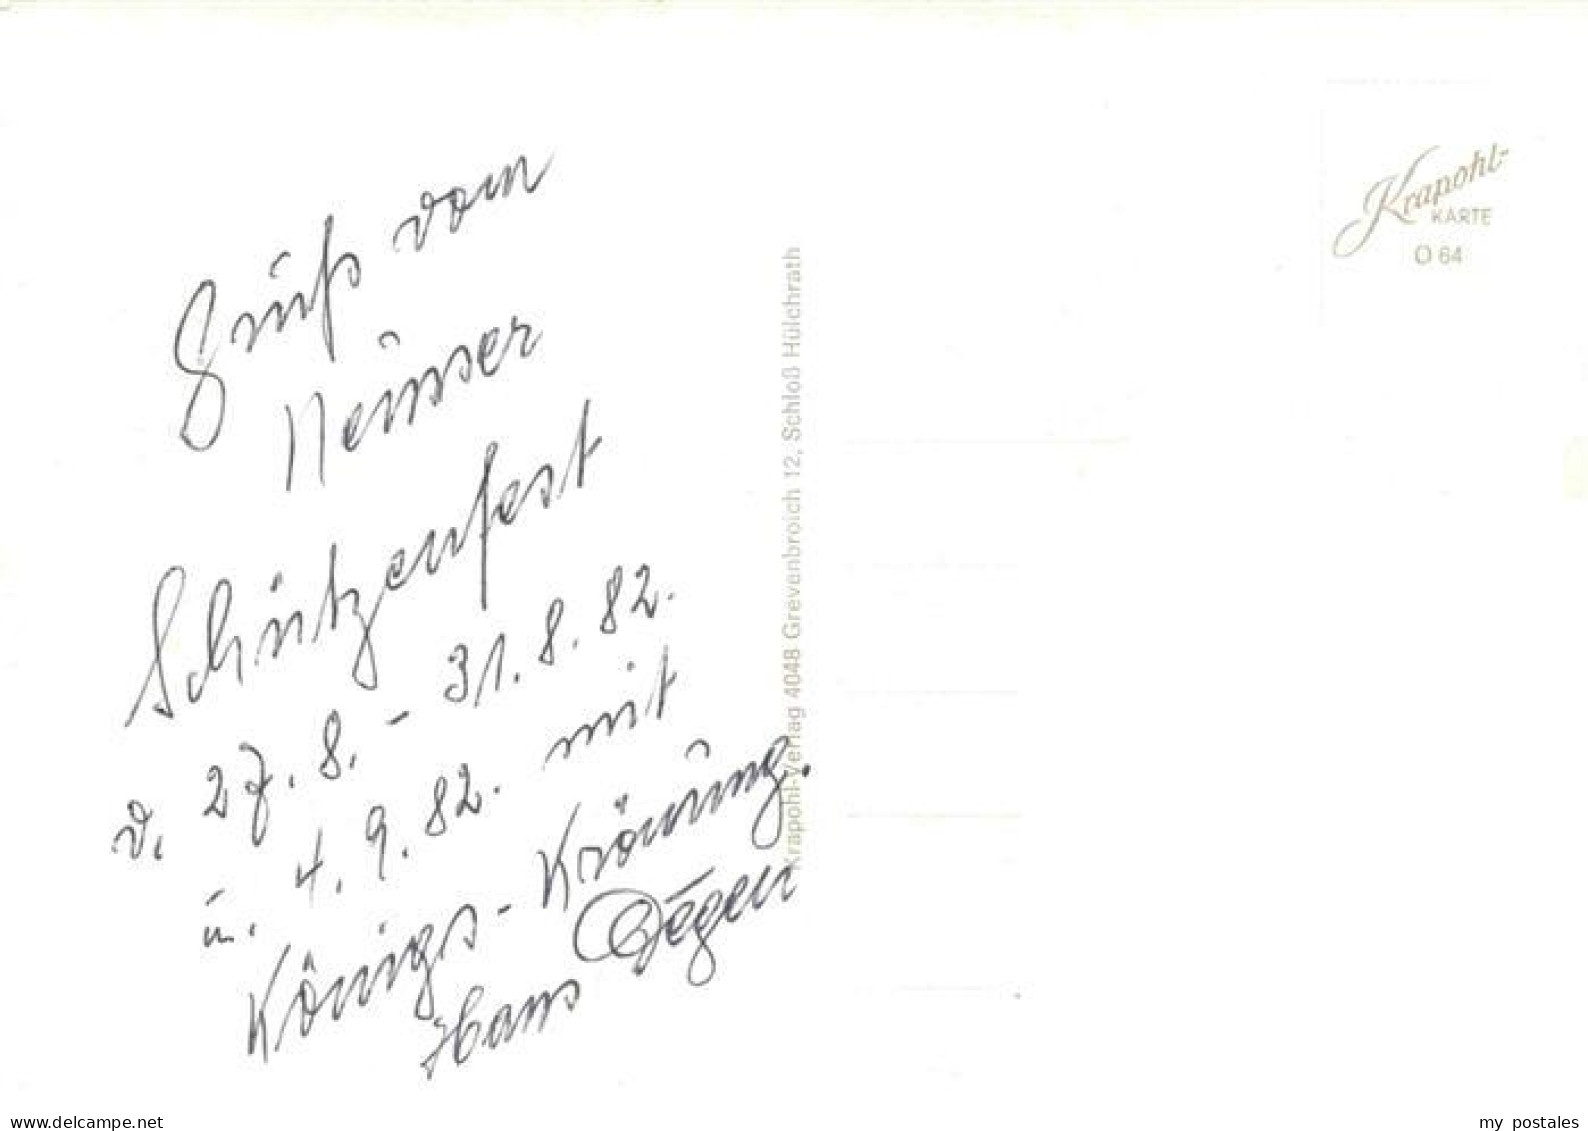 Gruß vom
Neusser
Schützenfest
v. 27.8. - 31.8.82.
u. 4.9.82. mit
Königs-Krönung.
Hans Degen
Krapohl-Verlag 4048 Grevenbroich 12, Schloß Hülchrath
Krapohl-
KARTE
O 64
www.delcampe.net
my_postales